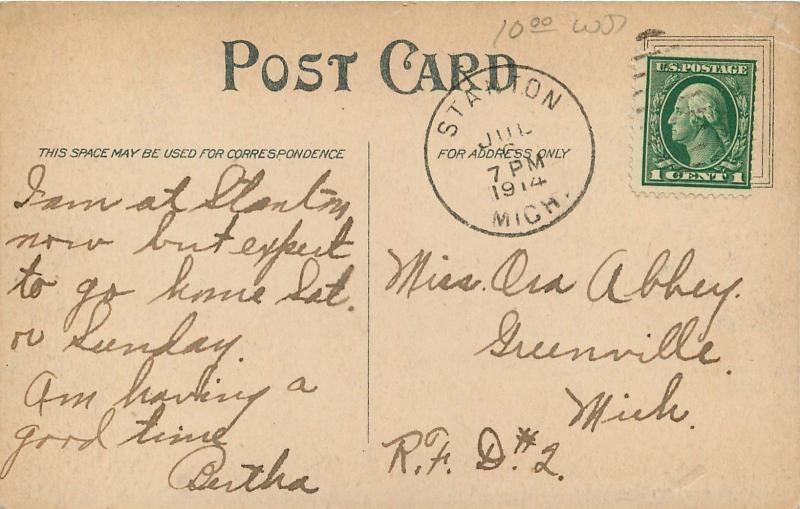 10 00
POST CARD
STANTON
JUL
6
7 PM
1914
MICH.
U.S. POSTAGE
1 CENT 1
THIS SPACE MAY BE USED FOR CORRESPONDENCE
FOR ADDRESS ONLY
I am at Stanton
now but expect
to go home Sat.
or Sunday.
Am having a
good time
Bertha
Miss. Ora Abbey.
Greenville.
Mich.
R.F. D.#2.